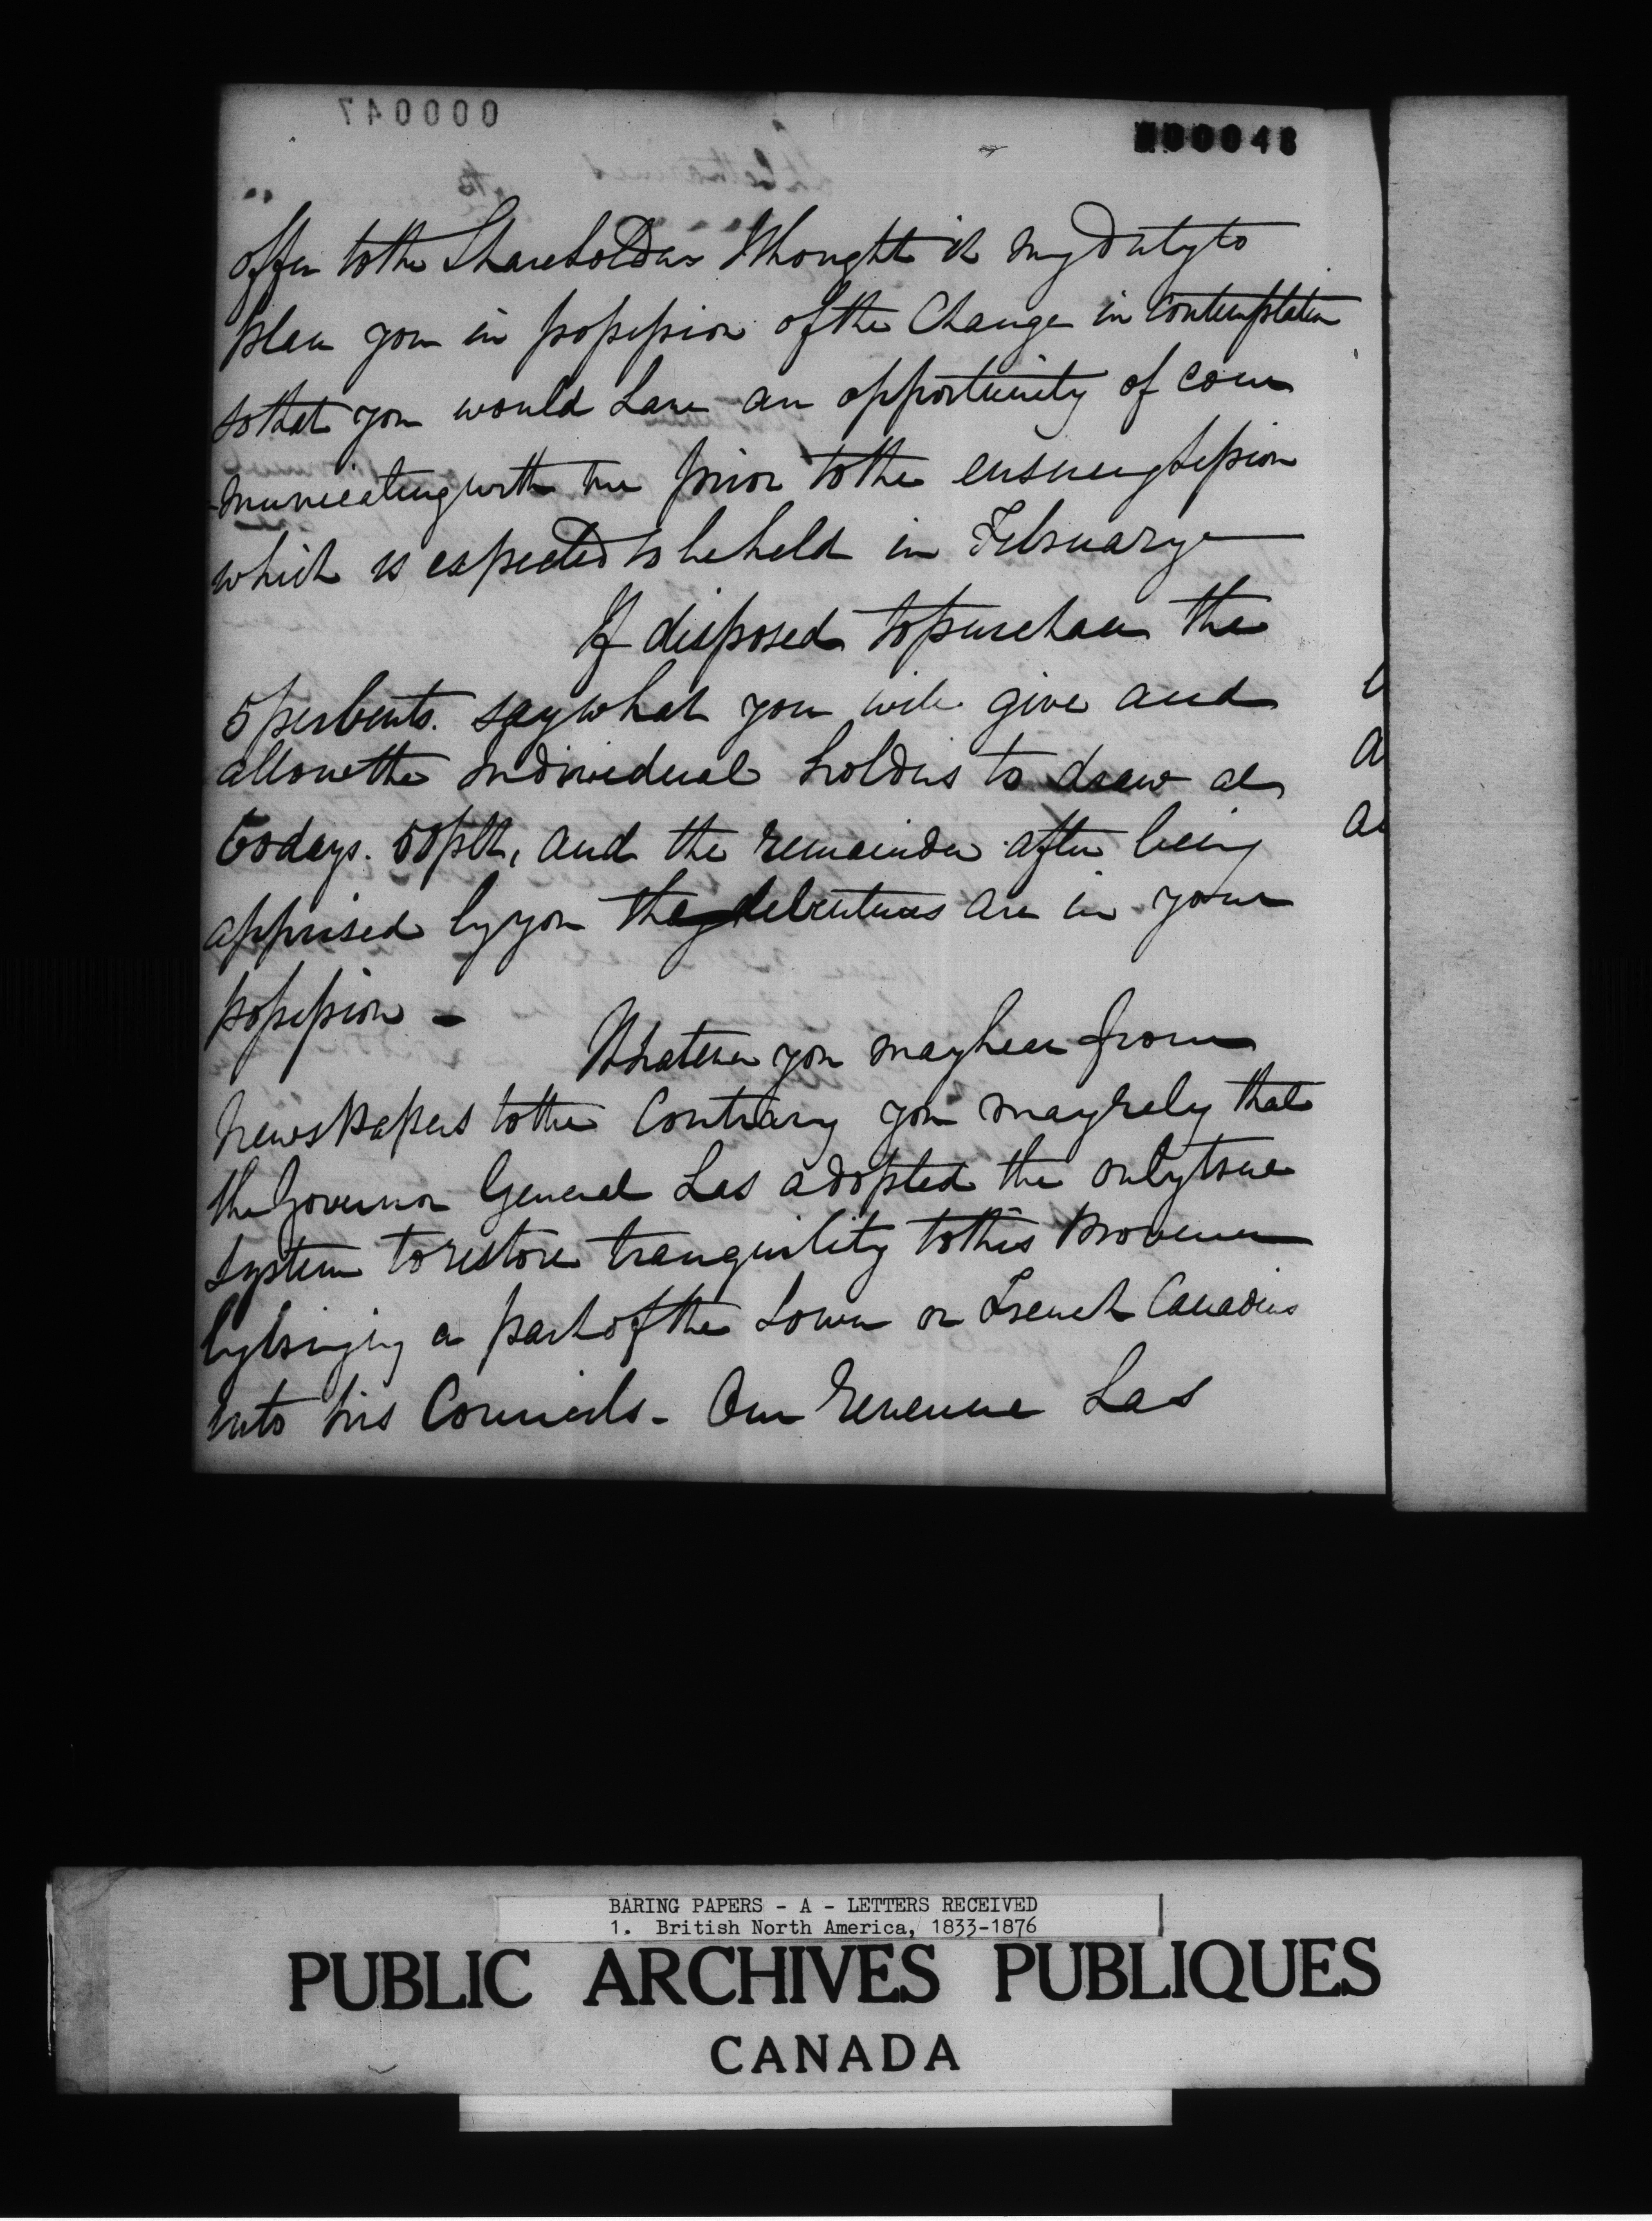 000047
000048
offer to the Shareholders I thought it my duty to
place you in possession of the Change in Contemplation
so that you would have an opportunity of com
-municating with me prior to the ensueing Session
which is expected to be held in February
If disposed to purchase the
5 perCents. say what you will give and
allow the individual holders to draw at
60 days. 50 pCt, and the remainder after being
apprised by you the debentures are in your
possession -
Whatever you may hear from
Newspapers to the Contrary you may rely that
the Governor General has adopted the only true
system to restore tranquility to this Province
by bringing a part of the Lower or French Canadians
into his Councils - Our revenue has
BARING PAPERS - A - LETTERS RECEIVED
1. British North America, 1833-1876
PUBLIC ARCHIVES PUBLIQUES
CANADA